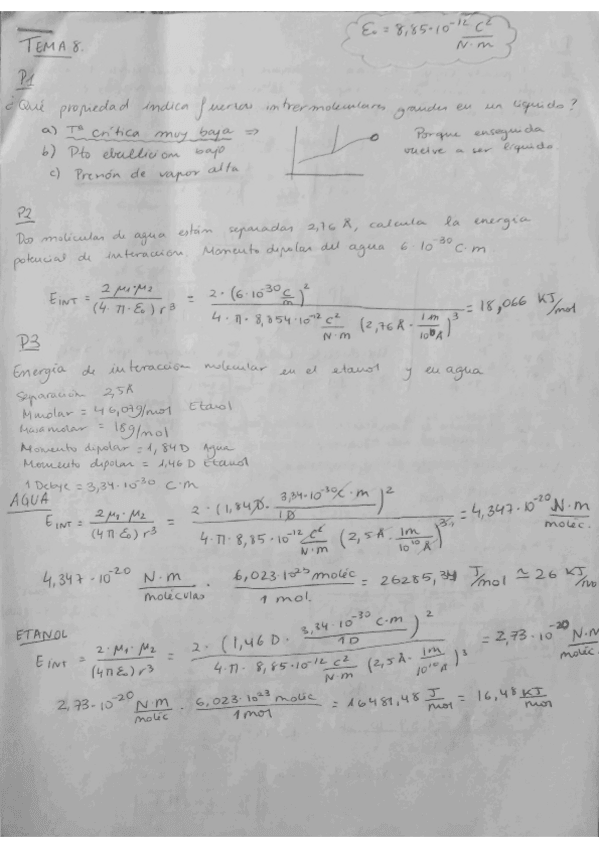 ε₀ = 8,85·10⁻¹² C²/N·m
TEMA 8.
P1
¿Qué propiedad indica fuerzas intermoleculares grandes en un líquido?
a) Tª crítica muy baja ⇒ Porque enseguida
b) Pto ebullicion bajo vuelve a ser líquido.
c) Presión de vapor alta
P2
Dos moléculas de agua están separadas 2,76 Å, calcula la energía
potencial de interacción. Momento dipolar del agua 6·10⁻³⁰ C·m
E_INT = 2 μ₁·μ₂ / (4·π·ε₀) r³ = 2·(6·10⁻³⁰ C/m)² / 4·π·8,854·10⁻¹² C²/N·m (2,76 Å · 1m/10¹⁰Å)³ = 18,066 KJ/mol
P3
Energía de interacción molecular en el etanol y en agua
Separación 2,5Å
Mmolar = 46,07g/mol Etanol
Masa molar = 18g/mol
Momento dipolar = 1,84D Agua
Momento dipolar = 1,46 D Etanol
1 Debye = 3,34·10⁻³⁰ C·m
AGUA
E_INT = 2μ₁·μ₂ / (4πε₀)r³ = 2·(1,84D · 3,34·10⁻³⁰ C·m / 1D)² / 4·π·8,85·10⁻¹² C²/N·m (2,5Å · 1m/10¹⁰Å)³ = 4,347·10⁻²⁰ N·m/moléc.
4,347·10⁻²⁰ N·m/moléculas · 6,023·10²³ moléc / 1 mol. = 26285,34 J/mol ≃ 26 KJ/mo
ETANOL
E_INT = 2·μ₁·μ₂ / (4πε₀)r³ = 2·(1,46 D · 3,34·10⁻³⁰ C·m / 1D)² / 4·π·8,85·10⁻¹² C²/N·m (2,5Å · 1m/10¹⁰Å)³ = 2,73·10⁻²⁰ N·m/moléc.
2,73·10⁻²⁰ N·m/moléc · 6,023·10²³ moléc / 1mol = 16481,48 J/mol = 16,48 KJ/mol